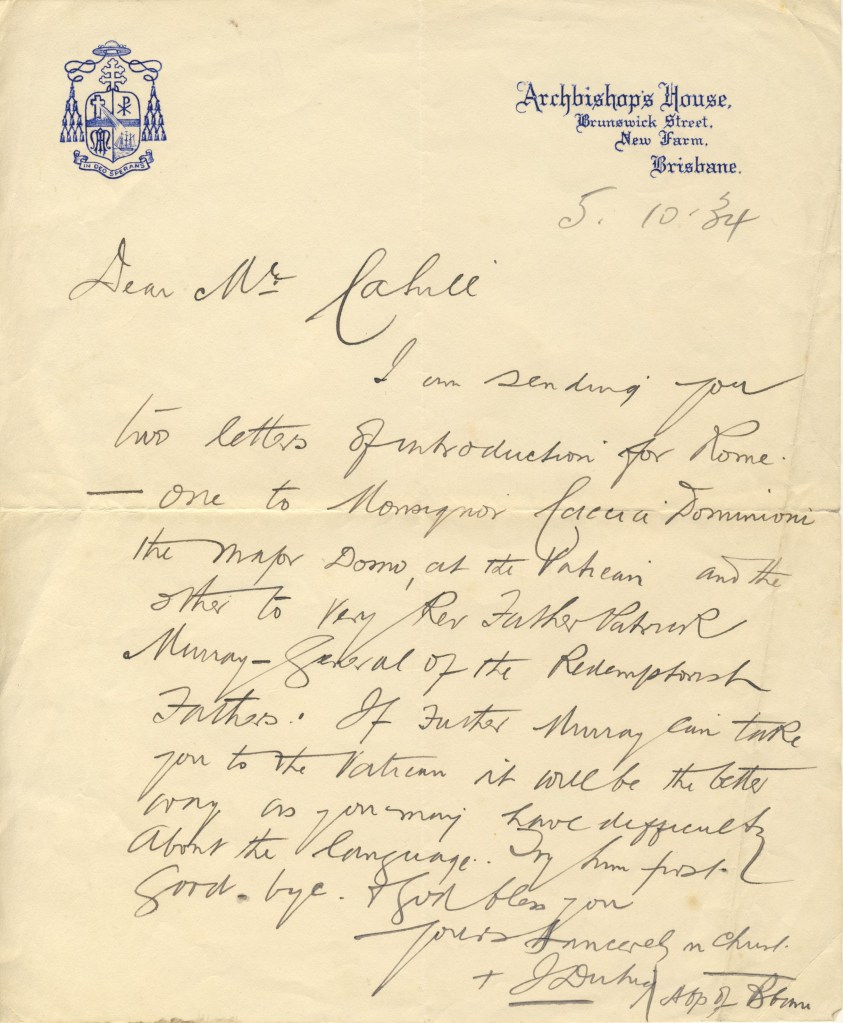 IN DEO SPERANS
Archbishop's House,
Brunswick Street,
New Farm,
Brisbane.
5. 10. 34
Dear Mr Cahill
I am sending you
two letters of introduction for Rome.
— one to Monsignor Caccia Dominioni
the Major Domo, at the Vatican and the
other to Very Rev Father Patrick
Murray – General of the Redemptorist
Fathers. If Father Murray can take
you to the Vatican it will be the better
way as you may have difficulty
about the language. Try him first.
Good-bye. & God bless you
Yours sincerely in Christ.
+ J Duhig
Abp of Bbane